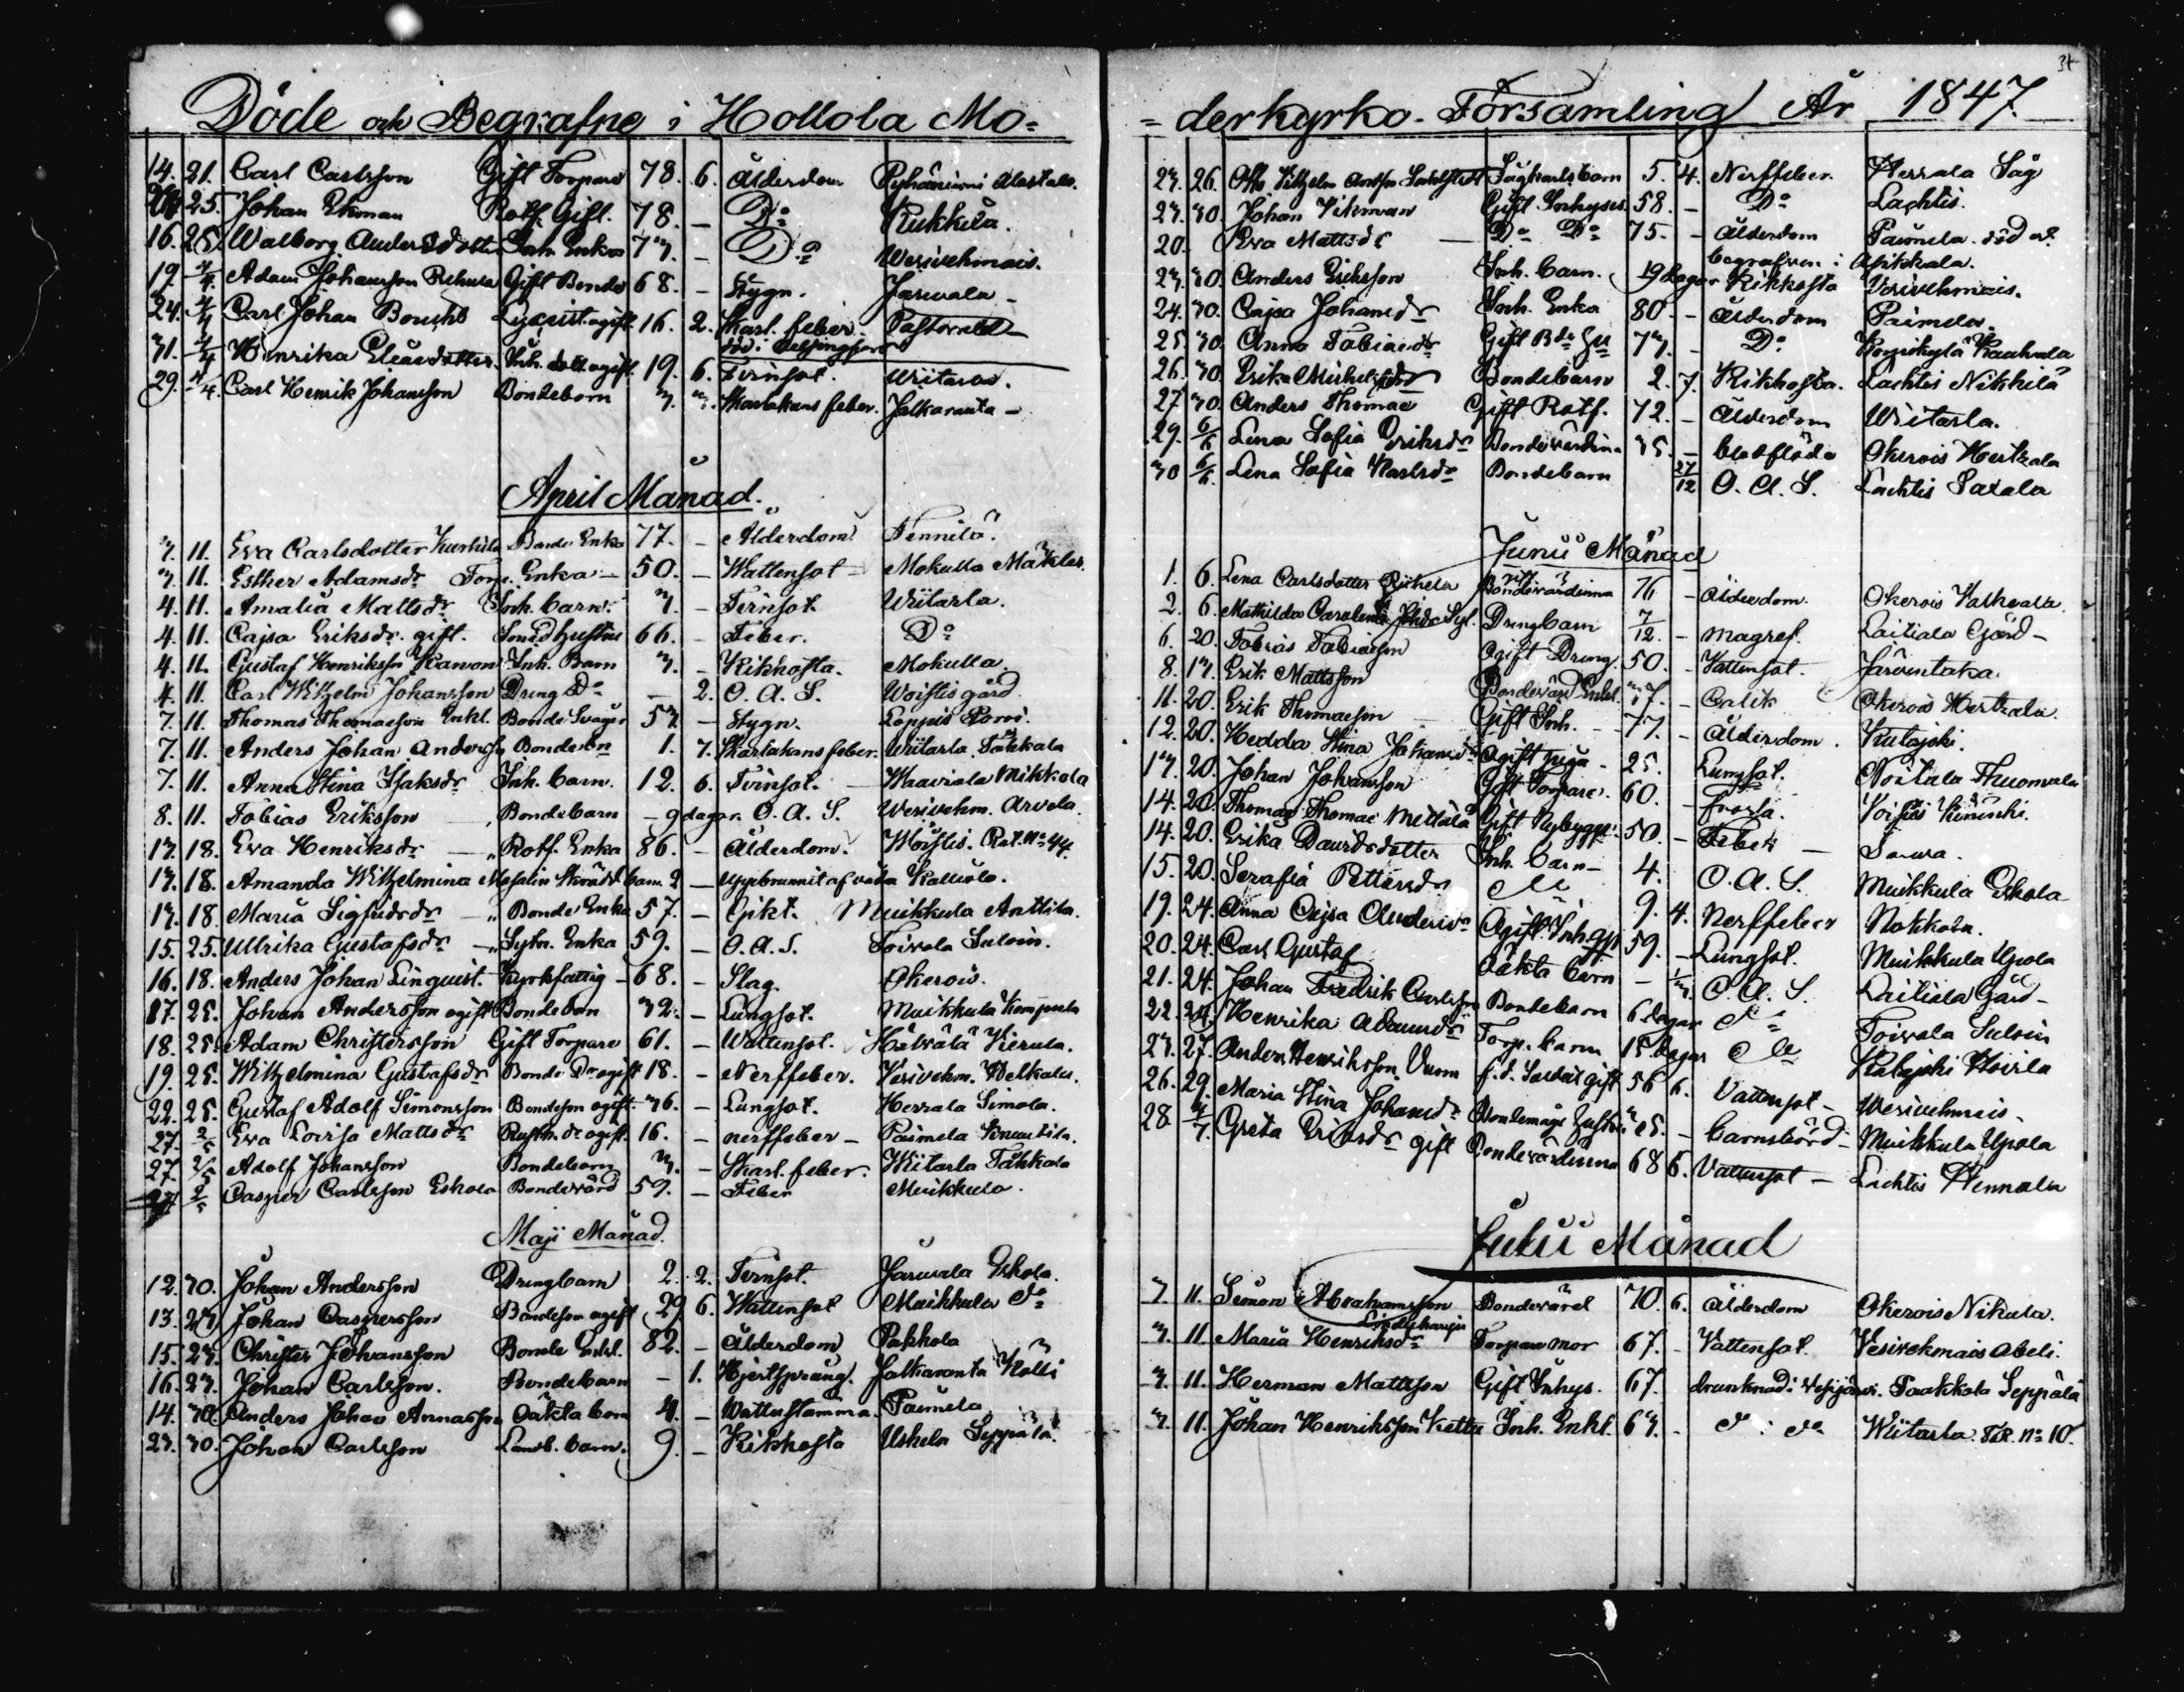 Döde och Begrafne i Hollola Mo-
14. 21. Carl Carlsson Gift Torpare 78. 6. Ålderdom Pyhäniemi Alastalo.
25. Johan Ekman Rotf. Gift. 78. - Do Kukkila.
16. 25. Walborg Andersdotter Inh. Enka 73. - Do Wesivehmais.
19. 4/4. Adam Johansson Gift Bonde 68. - Stygn. Jarwala -
24. 4/4 Carl Johan Lyceist ogift. 16. 2. Skarl. feber. Pastoratet
död i Helsingfors
31. 4/4 Henrika Eliasdotter. Inh. dott. ogift. 19. 6. Tvinsot. Wiitaila.
29. 4/4. Carl Henrik Johansson Bondebarn 3. 3. Skarlakans feber. Jalkaranta -
April Månad.
3. 11. Eva Carlsdotter Bonde Enka 77. - Ålderdom Tennilä.
3. 11. Esther Adamsdr Torp. Enka - 50. - Wattensot - Mokulla
4. 11. Amalia Mattsdr Inh. barn. 3. - Tvinsot. Wiitarla.
4. 11. Cajsa Eriksdr. gift. Smed hustru 66. - Feber. Do
4. 11. Gustaf Henriksson Inh. Barn 3. - Kikhosta. Mokulla.
4. 11. Carl Wilhelm Johansson Dreng Do - 2. O. A. S. Woistis gård.
7. 11. Thomas Thomasson Enkl. Bonde Svåger 53. - Stygn.
7. 11. Anders Johan Anderss. Bondebn 1. 7. Skarlakans feber. Wiitarla. Tåkkala
7. 11. Anna Stina Isaksdr Inh. barn. 12. 6. Tvinsot. - Waaviala Mikkola
8. 11. Tobias Eriksson Bondebarn - 9 dagar. O. A. S. Wesivehm. Arvela.
13. 18. Eva Henriksdr - Rotf. Enka 86. - Ålderdom. Woistis. Rot. No 44.
13. 18. Amanda Wilhelmina barn. 2 - uppbrunnit af våda Kalliola.
13. 18. Maria Sigfridsdr - Bonde Enka 57. - Gikt. Muikkula Anttila.
15. 25. Ullrika Gustafsdr - Sytn. Enka 59. - O. A. S. Toivola
16. 18. Anders Johan Linquist. Kyrkfattig - 68. - Slag. Okerois.
17. 25. Johan Andersson ogift Bondeson 32. - Lungsot. Muikkula
18. 25. Adam Christersson Gift Torpare 61. - Wattensot. Hätvälä Vierula.
19. 25. Wilhelmina Gustafsdr Bonde Dr ogift 18. - Nerffeber. Vesivehm.
22. 25. Gustaf Adolf Simonsson Bondeson ogift. 36. - Lungsot. Herrala Simola.
27. 2/5 Eva Lovisa Mattsdr Rustm. dr ogift. 16. - nerffeber - Paimela
27. 2/5 Adolf Johansson Bondebarn 3. - Skarl. feber. Wiitarla Tåkkala
2/5 Casper Carlsson Eskola Bondevärd 59. - Feber Muikkula.
Maji Månad.
12. 30. Johan Andersson Drengbarn 2. 2. Tvinsot. Jarwala Eskola.
13. 23. Johan Caspersson Bondeson ogift 29 6. Wattensot Muikkula Do
15. 23. Christer Johansson Bonde Enkl. 82. - Ålderdom Pakkola
16. 23. Johan Carlsson. Bondebarn - 1. Hjertsprång. Jalkaranta
14. 30. Anders Johan Annasson Oäkta barn 4. - Paimela
23. 30. Johan Carlsson barn. 9. - Kikhosta Uskela Seppälä.
34
-derkyrko-Församling År 1847.
23. 26. Otto Vilhelm Sågkarls barn 5. 4. Nerffeber. Herrala Såg
23. 30. Johan Vikman Gift Inhyses. 58. - Do Lachtis.
20. Eva Mattsdr - Do Do 75. - Ålderdom Paimela. död och
begrafven i Asikkala.
23. 30. Anders Eriksson Inh. barn. 19 dagar Kikhosta Vesivehmais.
24. 30. Cajsa Johansdr Inh. Enka 80. - Ålderdom Paimela.
25. 30. Anna Tobiaedr Gift 73. - Do
26. 30. Erika Michelsdr Bondebarn 2. 7. Kikhosta. Lachtis Nikkilä
27. 30. Anders Thomae Gift Rotf. 72. - Ålderdom Wiitarla.
29. 6/6 Lena Sofia Eriksdr Bondevärdina 35. - blodflöde Okerois Hertzala
30 6/6. Lena Sofia Karlsdr Bondebarn 27/12 O. A. S. Lachtis Saxala
Junii Månad
1. 6. Lena Carlsdotter Bondevärdinna 76 - Ålderdom. Okerois
2. 6. Mathilda Drengbarn 7/12. - magref. Laitiala Gård -
6. 20. Tobias Tobiasson Ogift Dreng. 50. - Vattensot. Järventaka.
8. 13. Erik Mattsson Bondevärd Enkl. 37. - Colik Okerois Hertzala.
11. 20. Erik Thomasson Gift Inh. - 77. - Ålderdom. Kutajoki.
12. 20. Hedda Stina Johansdr ogift piga - 25. Lungsot.
13. 20. Johan Johansson Gift Torpare. 60. - Frossa.
14. 20. Thomas Thomae Mettälä Gift Nybygg. 50. - Feber -
14. 20. Erika Davidsdotter Inh. barn - 4. O. A. S. Muikkula Eskola
15. 20. Serafia Pettersdr 9. 4. Nerffeber
19. 24. Anna Cajsa Andersdr Ogift. Inh. 59. - Lungsot. Muikkula Ujsola
20. 24. Carl Gustaf Oäkta barn - 1/3. O. A. S. Laitiala Gård -
21. 24. Johan Fredrik Carlsson Bondebarn 6 dagar Do Toivola
22. 24. Henrika Adamsdr Torp. barn 15. dagar Do
23. 27. Anders Henriksson f.d. Soldat gift 56 6. Vattensot - Wesivehmais -
26. 29. Maria Stina Johansdr Bondemåg hustru 25. - barnsbörd - Muikkula Ujsola
28. 4/7. Greta Eriksdr gift Bondevärdinna 68 6. Vattensot - Lachtis Hennala
Julii Månad
3. 11. Simon Abrahamsson Bondevärd 70. 6. Ålderdom Okerois Nikula.
3. 11. Maria Henriksdr Torpare mor 67. - Vattensot. Vesivehmais Abeli.
3. 11. Herman Mattsson Gift Inhys. 67. drunknad i Vesijärvi. Paakkola Seppälä
3. 11. Johan Henriksson Kettu Inh. Enkl. 63. - do : do Wiitarla. No 10.